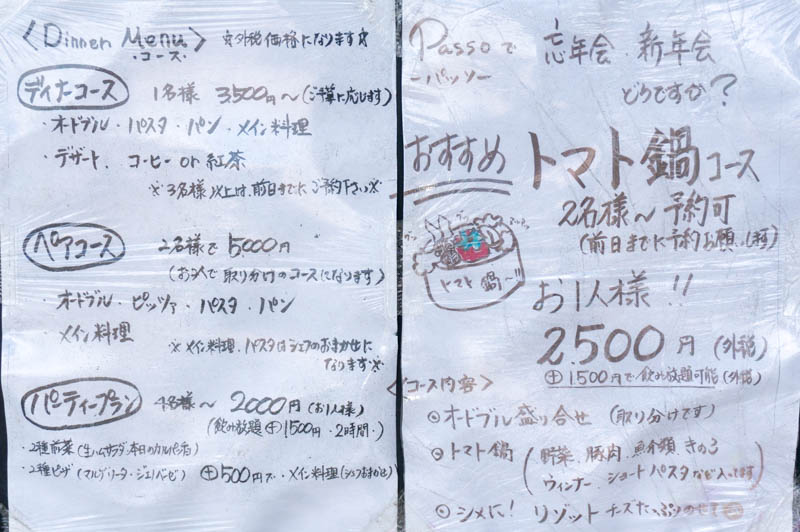 〈Dinner Menu〉 ☆外税価格になります☆
・コース・
ディナーコース 1名様 3,500円〜(ご予算に応じます)
・オードブル・パスタ・パン・メイン料理
・デザート、コーヒー or 紅茶
※3名様以上は、前日までにご予約下さい※
ペアコース 2名様で 5,000円
(お2人で取り分けのコースになります)
・オードブル・ピッツァ・パスタ・パン
・メイン料理 ※メイン料理、パスタはシェフのおまかせに
なります※
パーティープラン 4名様〜 2000円(お1人様)
(飲み放題⊕1,500円・2時間・)
・2種前菜(生ハムサラダ、本日のカルパッチョ)
・2種ピザ(マルゲリータ・ジェノベーゼ) ⊕500円で・メイン料理(シェフおまかせ)
Passoで 忘年会・新年会
ーパッソー どうですか?
おすすめ トマト鍋コース
2名様〜予約可
(前日までに予約お願いします)
トマト鍋〜!!!
お1人様!!
2500円(外税)
⊕1,500円で飲み放題可能(外税)
〈コース内容〉
◎オードブル盛り合せ(取り分けです)
◎トマト鍋(野菜、豚肉、魚介類、きのこ
ウィンナー、ショートパスタなど入ってます)
◎シメに! リゾット チーズたっぷりのせて